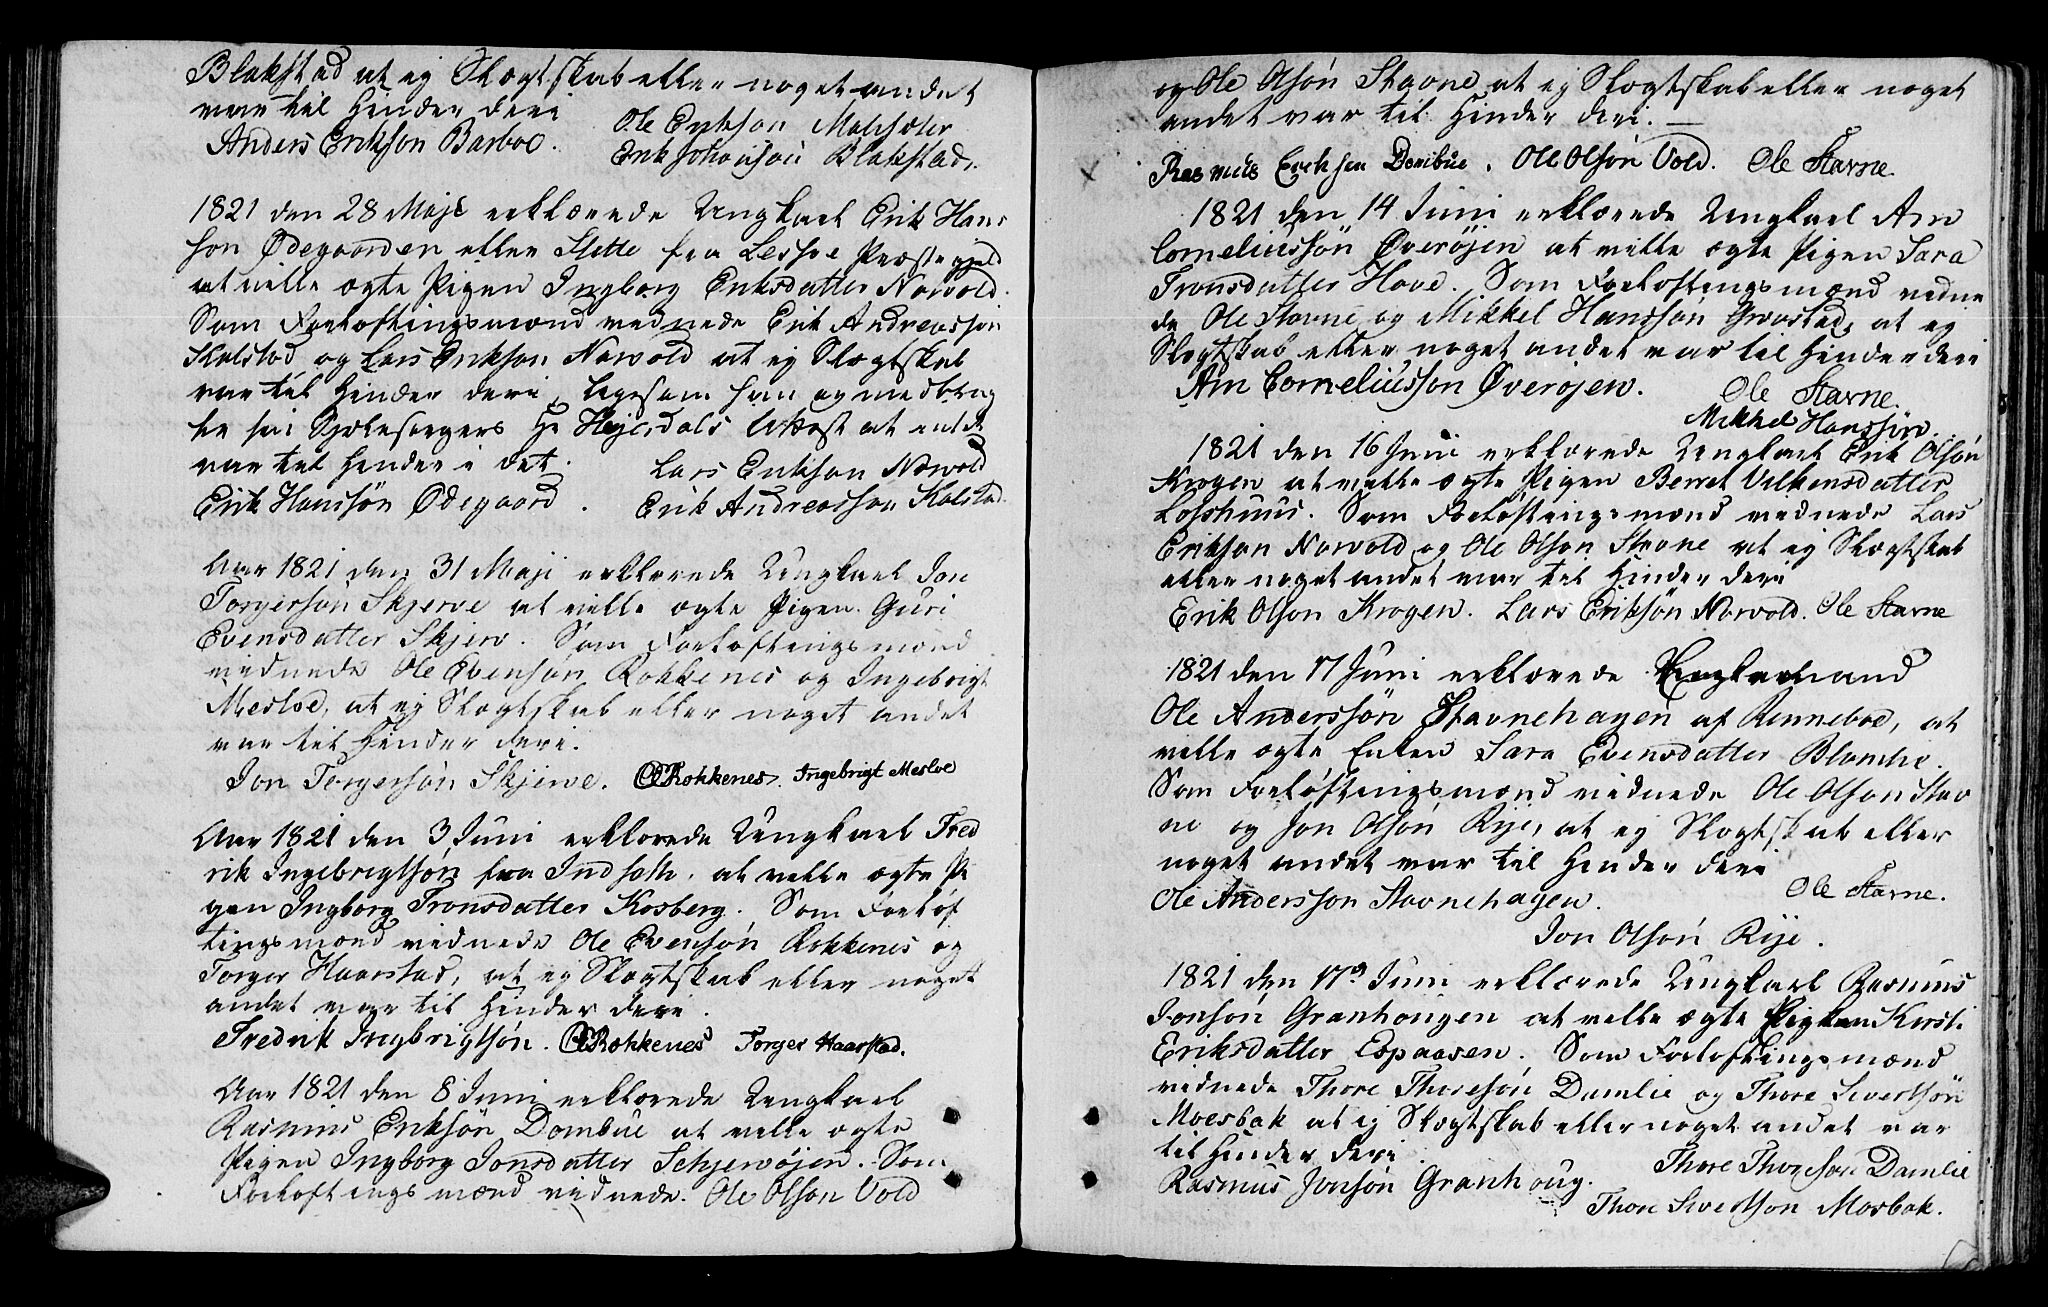 Blakstad at ej Slægtskab eller noget andet
var til Hinder deri
Anders Erikson Barboe. Ole Erikson
Erik Johnson Blakstad.
1821 den 28 Maji erklærede Ungkarl Erik Hans
søn Ødegaarden eller Slette fra Lessøe Præstegjeld
at ville ægte Pigen Ingborg Eriksdatter Norvold.
Som Forloftingsmænd vidnede Erik Andreassøn
Kalstad og Lars Erikson Norvold at ej Slægtskab
var til Hinder deri, ligesom han og medbrag
te sin Sjælesørgers Hr Hejerdals Attest at intet
var til Hinder i det.
Lars Erikson Norvold
Erik Hanssøn Ødegaard. Erik Andreasson Kalstad.
Aar 1821 den 31 Maji erklærede Ungkarl Jon
Torgerson Skjerve at ville ægte Pigen Guri
Evensdatter Skjerv. Som Forloftingsmænd
vidnede Ole Evensøn Rokkenes og Ingebrigt
Mesloe, at ej Slægtskab eller noget andet
var til Hinder deri.
Jon Torgersøn Skjerve. OERokkenes. Ingebrigt Mesloe
Aar 1821 den 3 Juni erklærede Ungkarl Fred
rik Ingebrigtsøn fra Indseth, at ville ægte Pi
gen Ingborg Tronsdatter Kosberg. Som Forløf
tingsmænd vidnede Ole Evensøn Rokkenes og
Torger Haarstad, at ej Slægtskab eller noget
andet var til Hinder deri.
Fredrik Ingbrigtsøn. OERokkenes Torger Haarstad.
Aar 1821 den 8 Juni erklærede Ungkarl
Rasmus Eriksøn Dombue at ville ægte
Pigen Ingborg Jonsdatter Schjervøjen. Som
Forloftingsmænd vidnede. Ole Olson Vold
og Ole Olsøn Stavne at ej Slægtskab eller noget
andet var til Hinder deri.
Rasmus Erichsen Dombue. Ole Olsøn Vold. Ole Stavne.
1821 den 14 Juni erklærede Ungkarl Arn
Corneliussøn Øverøjen at ville ægte Pigen Sara
Tronsdatter Hove. Som Forloftingsmænd vidne
de Ole Stavne og Mikkel Hanssøn Grøvstad, at ej
Slægtskab eller noget andet var til Hinder deri
Arn Corneliusson Øverøjen. Ole Stavne.
Mikkel Hanssøn.
1821 den 16 Juni erklærede Ungkarl Erik Olsøn
Krogen at ville ægte Pigen Berret Vilkensdatter
Losshuus. Som Forløftingsmænd vidnede Lars
Erikson Norvold og Ole Olson Stavne at ej Slægtskab
eller noget andet var til Hinder deri
Erik Olson Krogen. Lars Eriksøn Norvold. Ole Stavne
1821 den 17 Juni erklærede Enkemand
Ole Anderssøn Stavnehagen af Renneboe, at
ville ægte Enken Sara Evensdatter
Som Forløftingsmænd vidnede Ole Olson Stav
ne og Jon Olsøn Rije, at ej Slægtskab eller
noget andet var til Hinder deri
Ole Andersson Stavnehagen. Ole Stavne.
Jon Olsøn Rije.
1821 den 17de Juni erklærede Ungkarl Rasmus
Jonsøn Granhougen at ville ægte Pigen Kirsti
Eriksdatter Espaasen. Som Forloftingsmænd
vidnede Thore Thoresøn Damlie og Thore Sivertsøn
Moesbak at ej Slægtskab eller noget andet var
til Hinder deri.
Thore Thoreson Damlie
Rasmus Jonsøn Granhoug.
Thore Sivertson Mosbak.